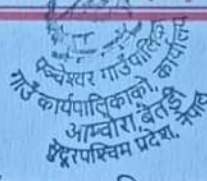 पञ्चेश्वर गाउँपालिका
गाउँ कार्यपालिकाको, कार्यालय
आम्चौरा, बैतडी
सुदूरपश्चिम प्रदेश, नेपाल